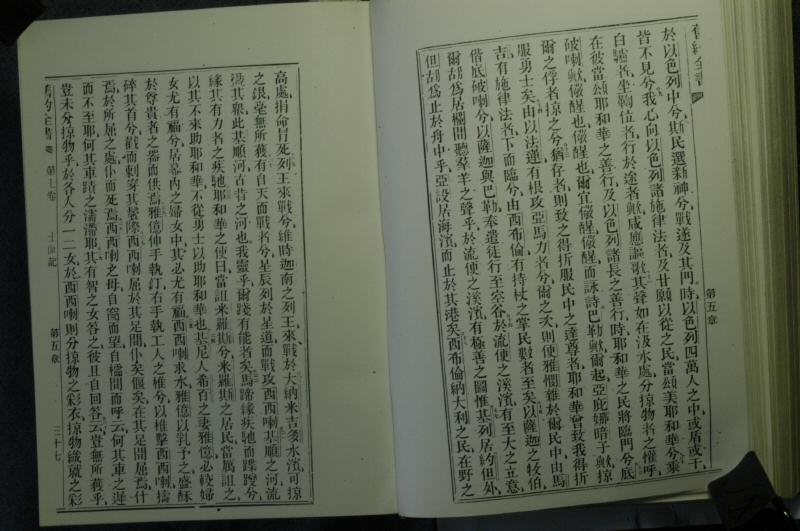 舊約全書
於以色列中兮、斯民選新神兮、戰遂及其門時、以色列四萬人之中、或盾或干、
皆不見兮、我心向以色列諸施律法者、及甘願以從之民、當頌美耶和華兮、乘
白驢者、坐鞫位者、行於途者歟、咸應謳歌、其聲如在汲水處、分掠物者之懽呼、
在彼當頌耶和華之善行、及以色列諸長之善行、時耶和華之民將臨門兮、底
破喇歟、儆醒也、儆醒也、爾宜儆醒、儆醒而詠詩、巴勒歟、爾起、亞庇娜暗子歟、掠
爾之俘者、掠之兮、猶存者、則致之得折服民中之達尊者、耶和華曾致我得折
服勇士矣、由以法蓮有根攻亞馬力者兮、爾之次則便雅憫、雜於爾民中、由馬
吉有施律法者下而臨兮、由西布倫有持杖之掌民數者至矣、以薩迦之牧伯
偕底破喇兮、以薩迦與巴勒、奉遣徒行至宗谷、於流便之溪濱有至大之立意、
爾胡為居欄間、聽羣羊之聲乎、於流便之溪濱有極善之圖惟、基列居約但外、
但胡為止於舟中乎、亞設居海濱、而止於其港矣、西布倫納大利之民、在野之
第五章
高處、捐命冒死、列王來戰兮、維時迦南之列王來戰、於大納米吉多水濱、可掠
之銀、毫無所獲、有自天而戰者兮、星辰列於星道而戰攻西西喇、基順之河、流
蕩其眾、此基順河、古昔之河也、我靈乎、爾踐有能者矣、馬蹄緣疾馳而蹀躞兮、
緣其有力者之疾馳、耶和華之使曰、當詛米羅斯兮、米羅斯之居民、當厲詛之、
以其不來助耶和華、不從勇士以助耶和華也、基尼人希百之妻雅億、必較婦
女尤有福兮、居幕內之婦女中、其必尤有福、西西喇求水、雅億以乳予之、盛酥
於尊貴者之器而供焉、雅億伸手執釘、右手執工人之椎兮、以椎擊西西喇、擣
碎其首兮、戳而刺穿其鬢際、西西喇屈於其足間、仆矣、偃矣、在其足間屈焉、什
焉、於所屈之處、仆而死焉、西西喇之母、自窗而望、自櫺間而呼云、何其車之遲
而不至耶、何其車蹟之濡滯耶、其有智之女答之、彼且自回答云、豈無所獲乎、
豈未分掠物乎、於各人分一二女、於西西喇則分掠物之彩衣、掠物織就之彩
舊約全書 第七卷 士師記 第五章 三十七